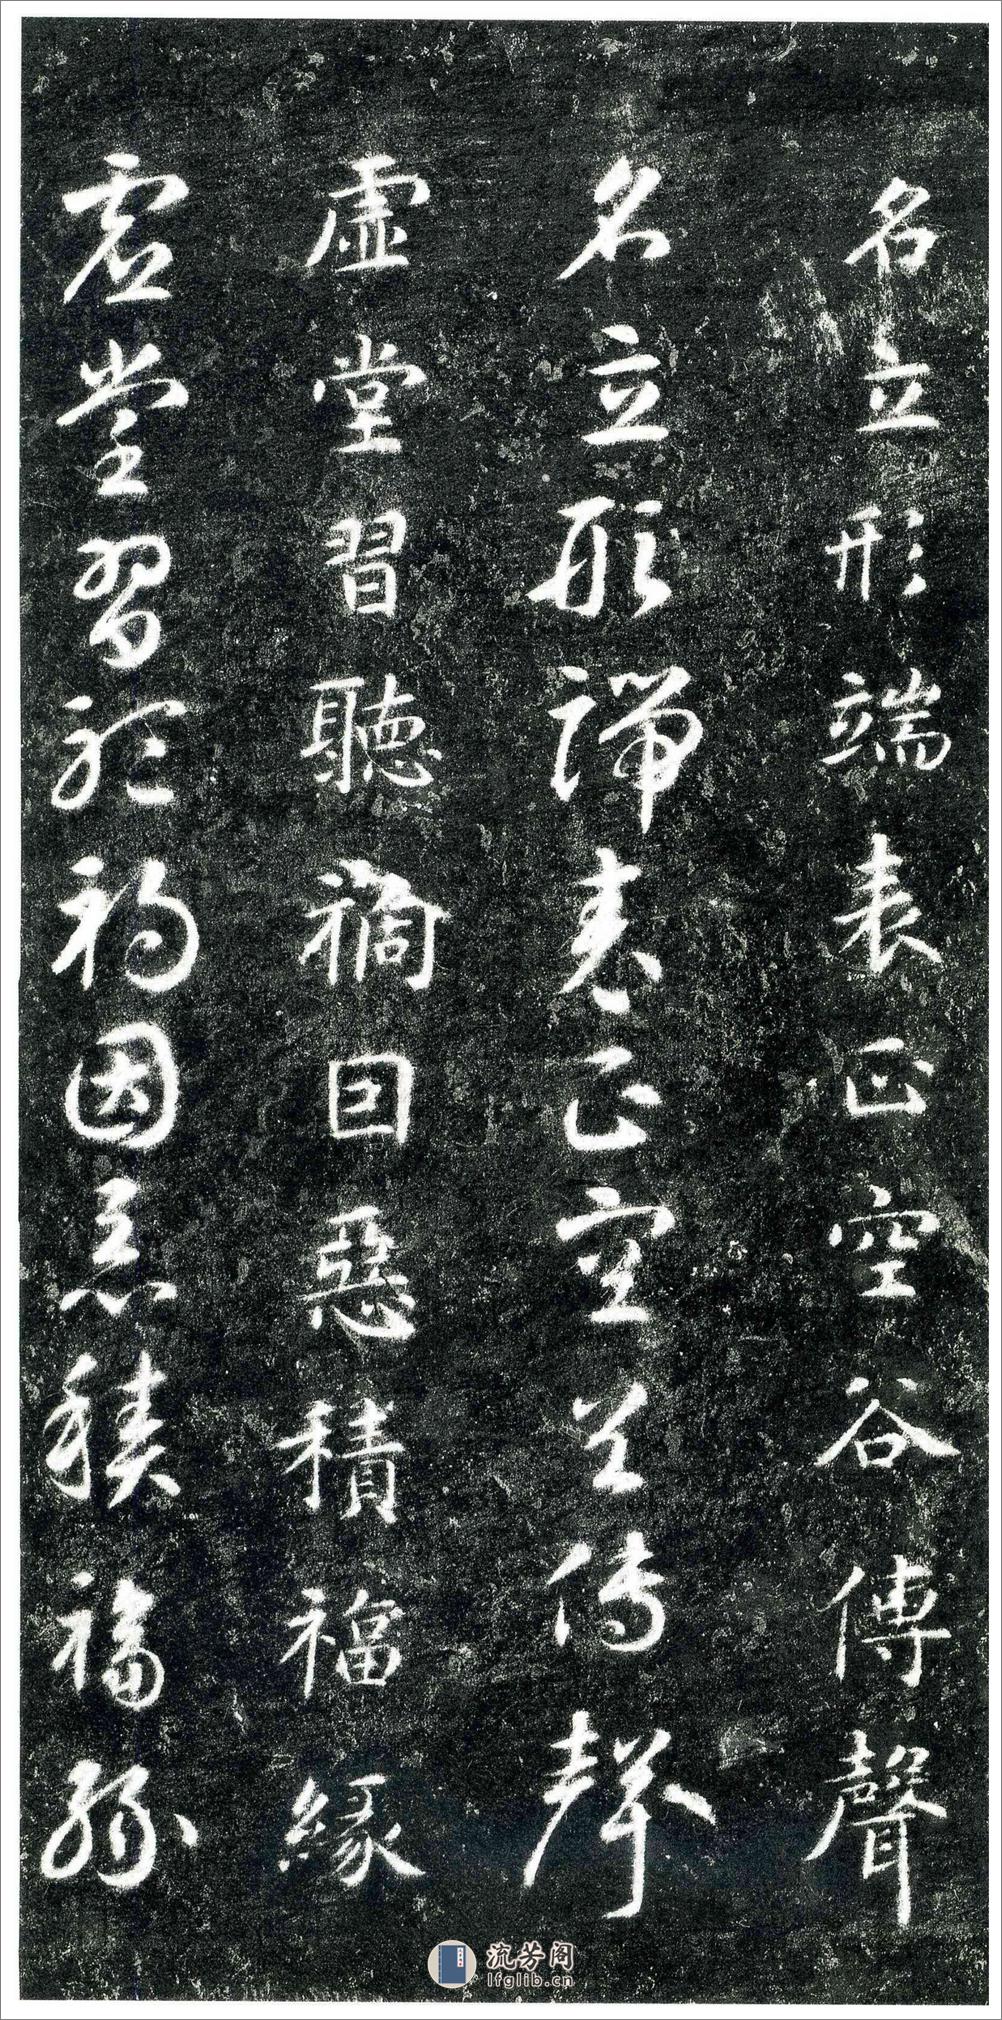 名立形端表正空谷傳聲
名立形端表正空谷傳聲
虛堂習聽禍因惡積福緣
虛堂習聽禍因惡積福緣
流芳阁
lfglib.cn